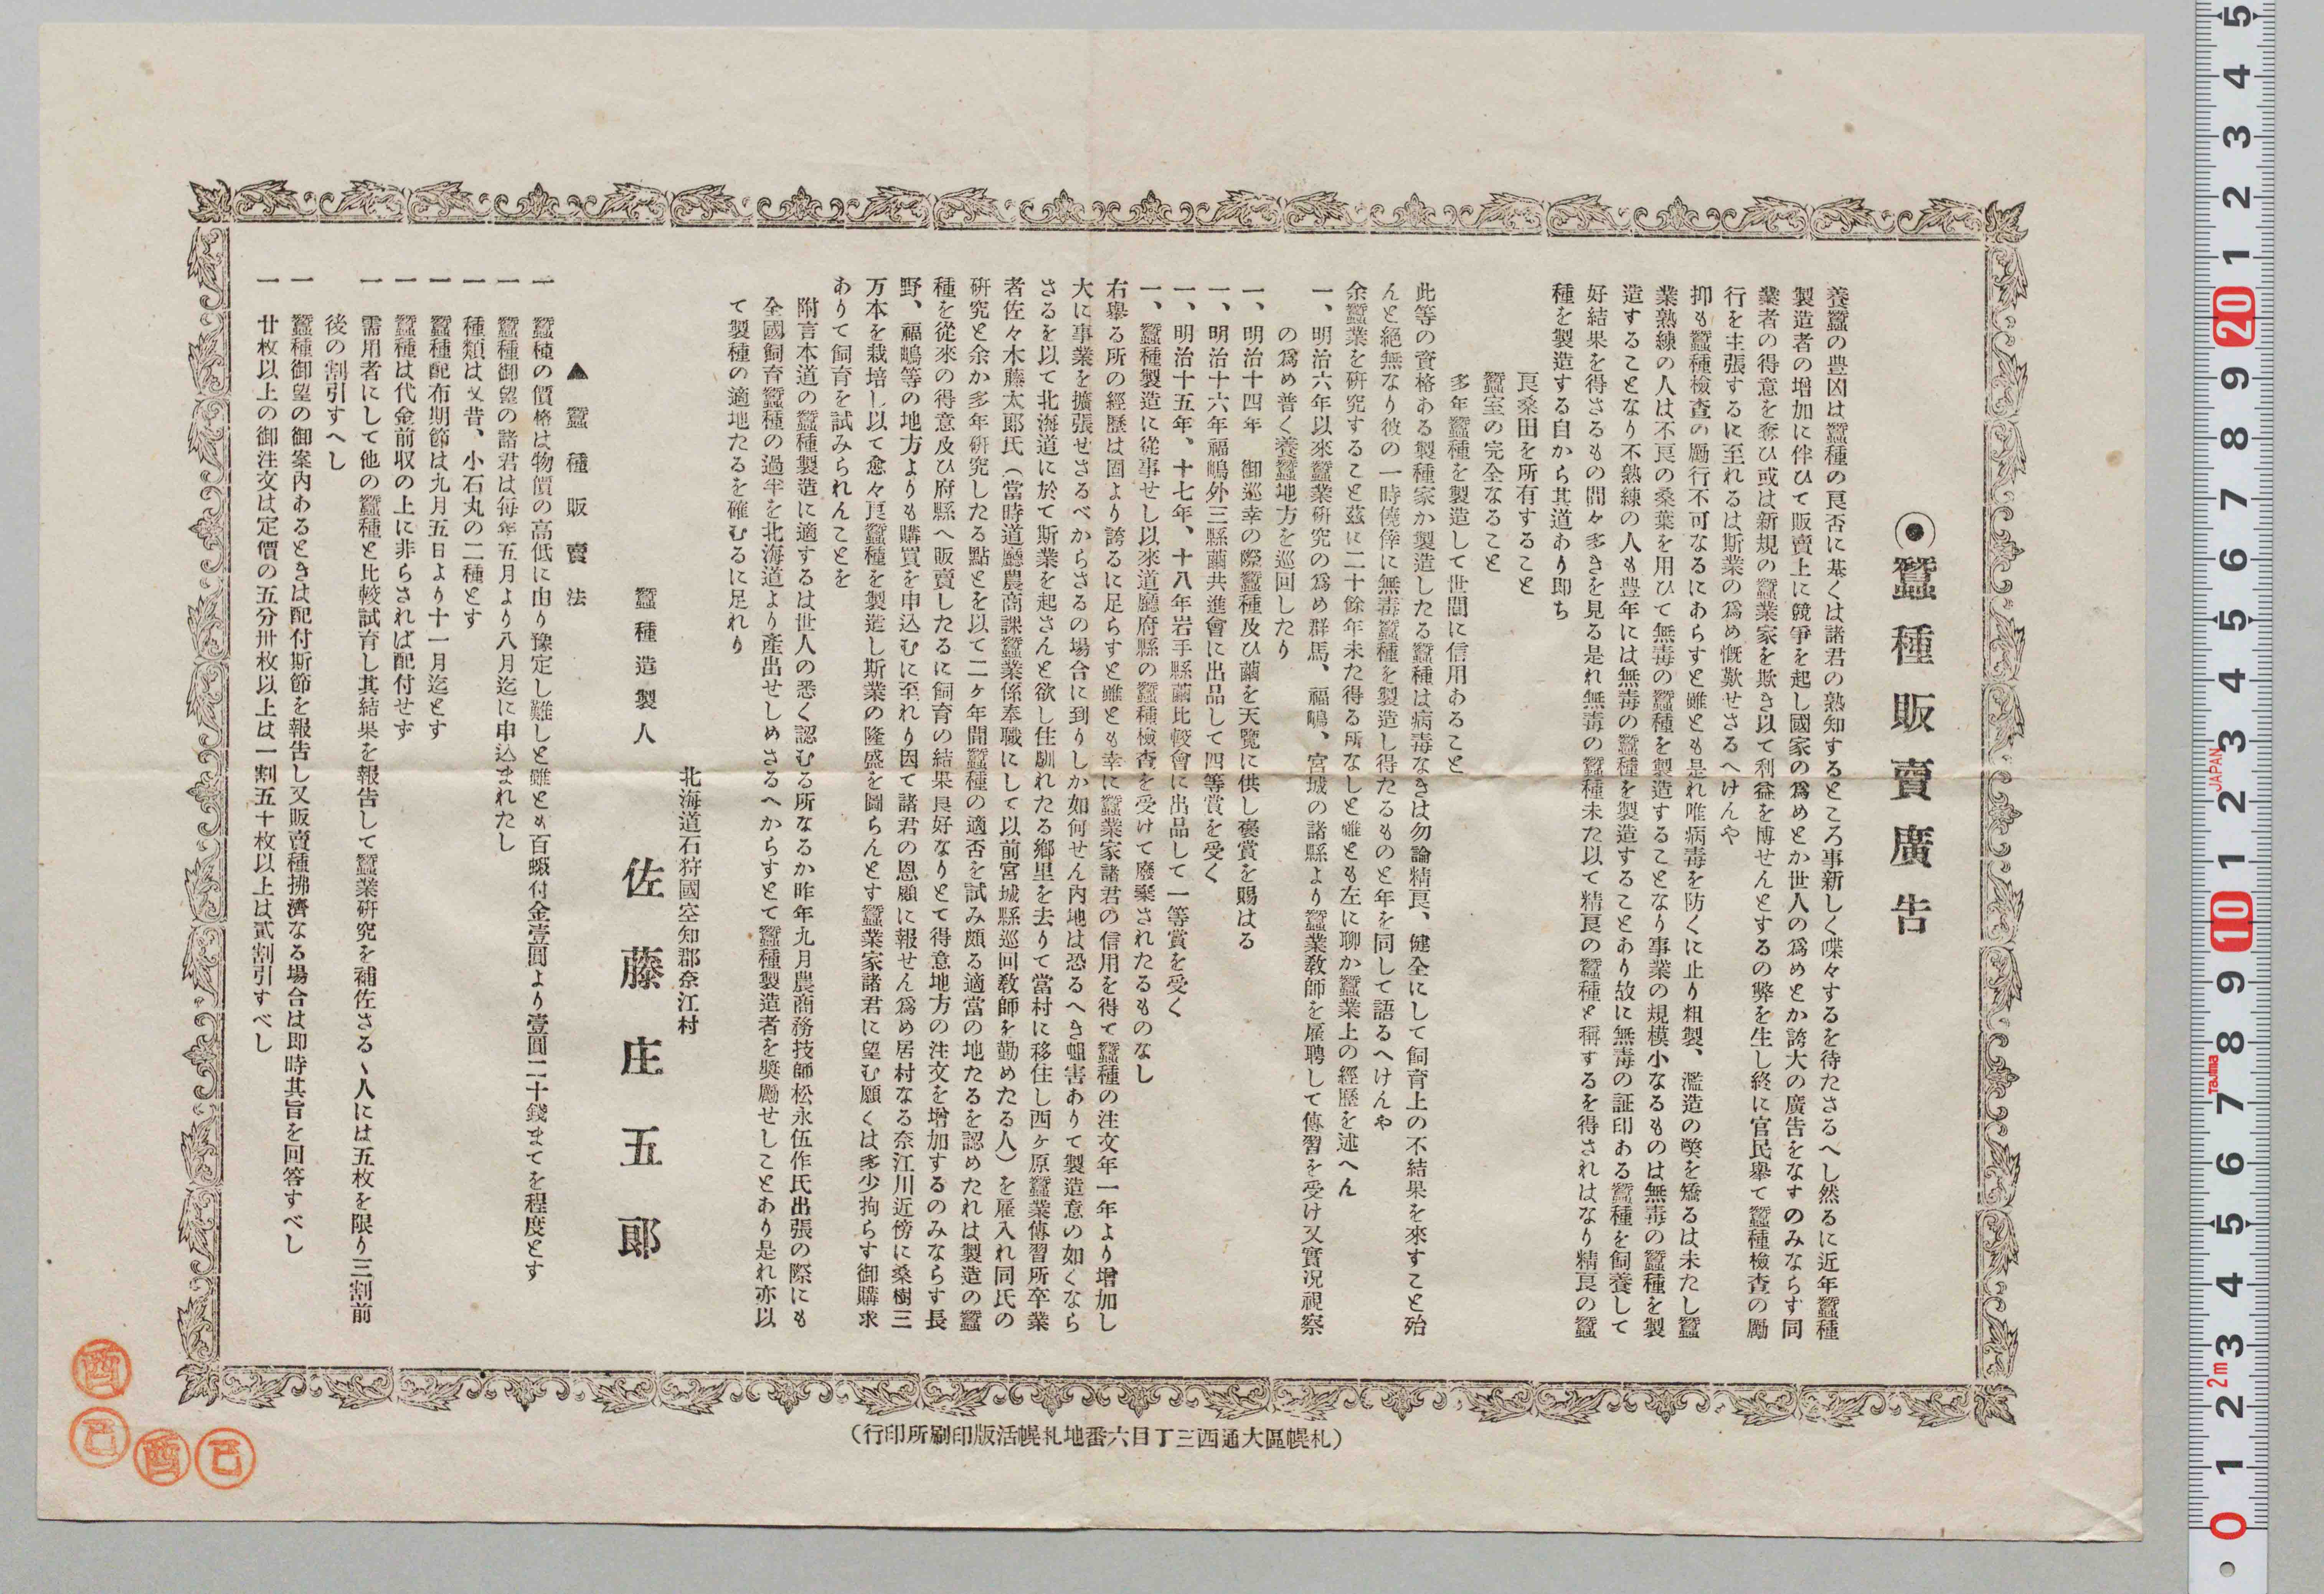 ◉蠶種販賣廣告
養蠶の豊凶は蠶種の良否に基くは諸君の熟知するところ事新しく喋々するを待たさるへし然るに近年蠶種
製造者の増加に伴ひて販賣上に競爭を起し國家の爲めとか世人の爲めとか誇大の廣告をなすのみならす同
業者の得意を奪ひ或は新規の蠶業家を欺き以て利益を博せんとするの弊を生し終に官民擧て蠶種檢査の勵
行を主張するに至れるは斯業の爲め慨歎せさるへけんや
抑も蠶種檢査の勵行不可なるにあらすと雖とも是れ唯病毒を防くに止り粗製、濫造の弊を矯るは未たし蠶
業熟練の人は不良の桑葉を用ひて無毒の蠶種を製造することなり事業の規模小なるものは無毒の蠶種を製
造することなり不熟練の人も豊年には無毒の蠶種を製造することあり故に無毒の証印ある蠶種を飼養して
好結果を得さるもの間々多きを見る是れ無毒の蠶種未た以て精良の蠶種と稱するを得されはなり精良の蠶
種を製造する自から其道あり即ち
良桑田を所有すること
蠶室の完全なること
多年蠶種を製造して世間に信用あること
此等の資格ある製種家か製造したる蠶種は病毒なきは勿論精良、健全にして飼育上の不結果を來すこと殆
んと絶無なり彼の一時僥倖に無毒蠶種を製造し得たるものと年を同して語るへけんや
余蠶業を研究すること茲に二十餘年未た得る所なしと雖とも左に聊か蠶業上の經歷を述へん
一、明治六年以來蠶業研究の爲め群馬、福嶋、宮城の諸縣より蠶業敎師を雇聘して傳習を受け又實況視察
の爲め普く養蠶地方を巡回したり
一、明治十四年　御巡幸の際蠶種及ひ繭を天覽に供し褒賞を賜はる
一、明治十六年福嶋外三縣繭共進會に出品して四等賞を受く
一、明治十五年、十七年、十八年岩手縣繭比較會に出品して一等賞を受く
一、蠶種製造に從事せし以來道廳府縣の蠶種檢查を受けて廢棄されたるものなし
右擧る所の經歷は固より誇るに足らすと雖とも幸に蠶業家諸君の信用を得て蠶種の注文年一年より増加し
大に事業を擴張せさるべからさるの場合に到りしか如何せん內地は恐るへき蛆害ありて製造意の如くなら
さるを以て北海道に於て斯業を起さんと欲し住馴れたる鄕里を去りて當村に移住し西ヶ原蠶業傳習所卒業
者佐々木藤太郞氏（當時道廳農商課蠶業係奉職にして以前宮城縣巡回敎師を勤めたる人）を雇入れ同氏の
硏究と余か多年硏究したる點とを以て二ヶ年間蠶種の適否を試み頗る適當の地たるを認めたれは製造の蠶
種を從來の得意及ひ府縣へ販賣したるに飼育の結果良好なりとて得意地方の注文を增加するのみならす長
野、福嶋等の地方よりも購買を申込むに至れり因て諸君の恩顧に報せん爲め居村なる奈江川近傍に桑樹三
万本を栽培し以て愈々良蠶種を製造し斯業の隆盛を圖らんとす蠶業家諸君に望む願くは多少拘らす御購求
ありて飼育を試みられんことを
附言本道の蠶種製造に適するは世人の悉く認むる所なるか昨年九月農商務技師松永伍作氏出張の際にも
全國飼育蠶種の過半を北海道より產出せしめさるへからすとて蠶種製造者を奬勵せしことあり是れ亦以
て製種の適地たるを確むるに足れり
北海道石狩國空知郡奈江村
蠶種造製人　佐藤庄五郞
▲蠶種販賣法
一　蠶種の價格は物價の高低に由り豫定し難しと雖とも百蛾付金壹圓より壹圓二十錢まてを程度とす
一　蠶種御望の諸君は每年五月より八月迄に申込まれたし
一　種類は又昔、小石丸の二種とす
一　蠶種配布期節は九月五日より十一月迄とす
一　蠶種は代金前収の上に非らされば配付せず
一　需用者にして他の蠶種と比較試育し其結果を報告して蠶業研究を補佐さるゝ人には五枚を限り三割前
後の割引すへし
一　蠶種御望の御案內あるときは配付斯節を報告し又販賣種拂濟なる場合は即時其旨を回答すべし
一　廿枚以上の御注文は定價の五分卅枚以上は一割五十枚以上は貳割引すべし
（札幌區大通西三丁目六番地札幌活版印刷所印行）
酉
己
酉
己
5
4
3
2
1
20
9
8
7
6
5
4
3
2
JAPAN
1
10
9
8
Tajima
7
6
5
4
3
2m
2
1
0